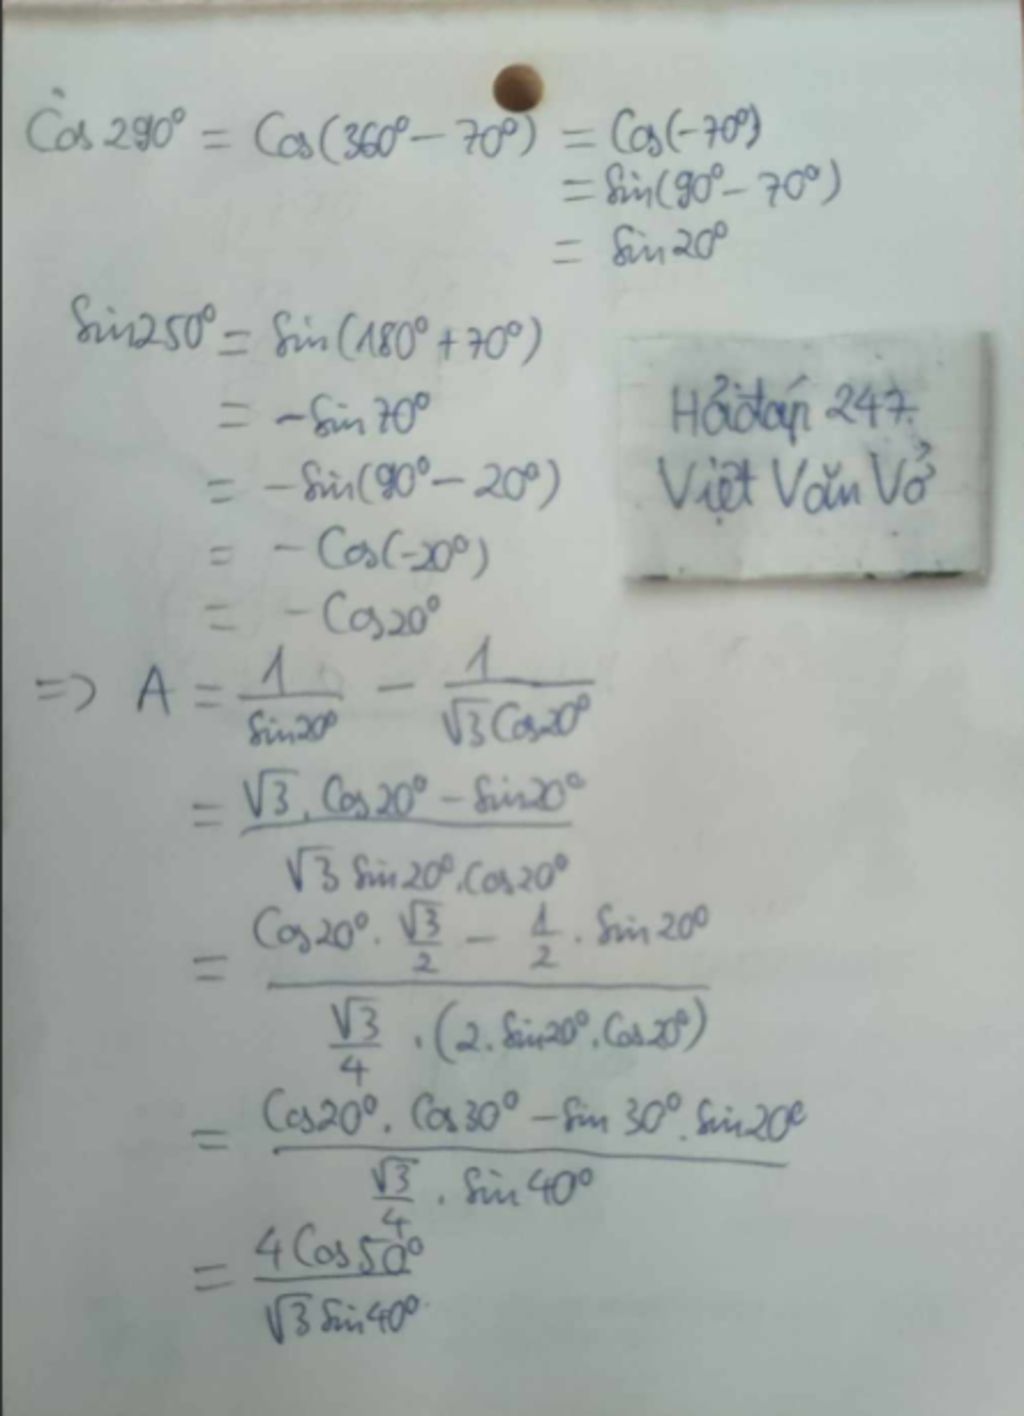 Cos 290° = Cos(360° - 70°) = Cos(-70°)
= Sin(90° - 70°)
= Sin 20°
Sin250° = Sin(180° + 70°)
= -Sin 70°
= -Sin(90° - 20°)
= - Cos(-20°)
= - Cos20°
Hỏi đáp 247.
Việt Văn Vở
=> A = 1/Sin20° - 1/√3 Cos20°
= √3 . Cos20° - Sin20° / √3 Sin20°.Cos20°
= Cos20° . √3/2 - 1/2 . Sin 20° / √3/4 . (2. Sin20°. Cos20°)
= Cos20° . Cos30° - Sin 30° . Sin20° / √3/4 . Sin 40°
= 4 Cos50° / √3 Sin40°